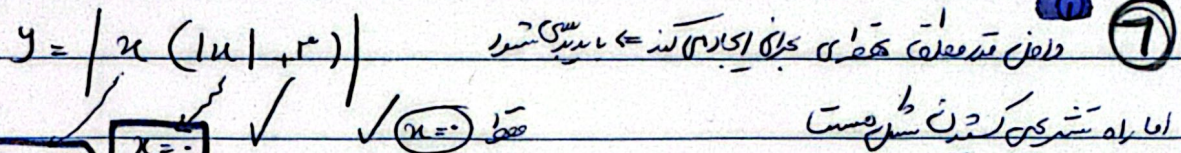 ۶ داخل قدرمطلق نقطه‌ای بحرانی ایجاد می‌کند ⇐ باید بررسی شود y = | x (|x| + ۳) |
اما راه تشریحی کشیدن شکل هست فقط x=۰ ✓ ✓ x=۰